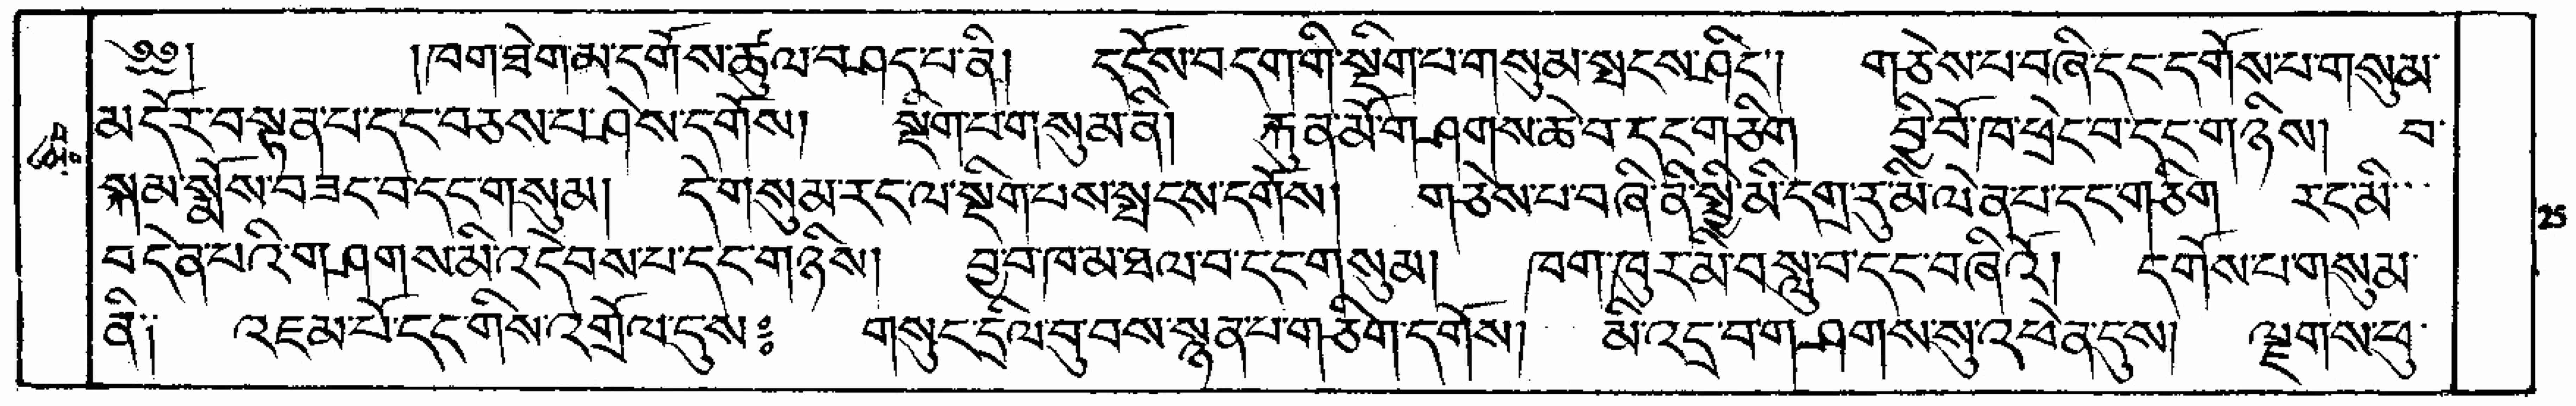 ༄༅། །ཁག་ཐེག་མ་དགོས་ཚུལ་བཤད་པ་ནི། དངོས་བདག་གི་སྡིག་པ་གསུམ་སྤངས་ཤིང་། གཅེས་པ་བཞི་དང་དགོས་པ་གསུམ་
མདོར་བསྟན་པ་དང་བཅས་པ་ཤེས་དགོས། སྡིག་པ་གསུམ་ནི། རྐུན་མོ་གཤགས་ཆེ་བ་དང་གཅིག བྱི་བོ་ཁ་ཕྲེང་བ་དང་གཉིས། བ་
སྐམ་སྨོས་བཟང་བ་དང་གསུམ། དེ་གསུམ་རང་ལ་སྡིག་པས་སྤངས་དགོས། གཅེས་པ་བཞི་ནི་སྤྱི་མི་དགྲ་རུ་མི་ལེན་པ་དང་གཅིག རང་མི་
བདེན་པའི་གཤགས་མི་འདེབས་པ་དང་གཉིས། བྱ་བ་ཁ་མ་ཐལ་བ་དང་གསུམ། ཁག་ཁུར་མི་བསླུ་བ་དང་བཞིའོ། དགོས་པ་གསུམ་
ནི། འཇམ་པོ་དང་གིས་འགྲོལ་དུས༔ གསུང་དྲིལ་བུ་བས་སྙན་པ་གཅིག་དགོས། མི་འདྲ་བ་གཤགས་སུ་འཕེན་དུས། ལྕགས་ཕུ་
25